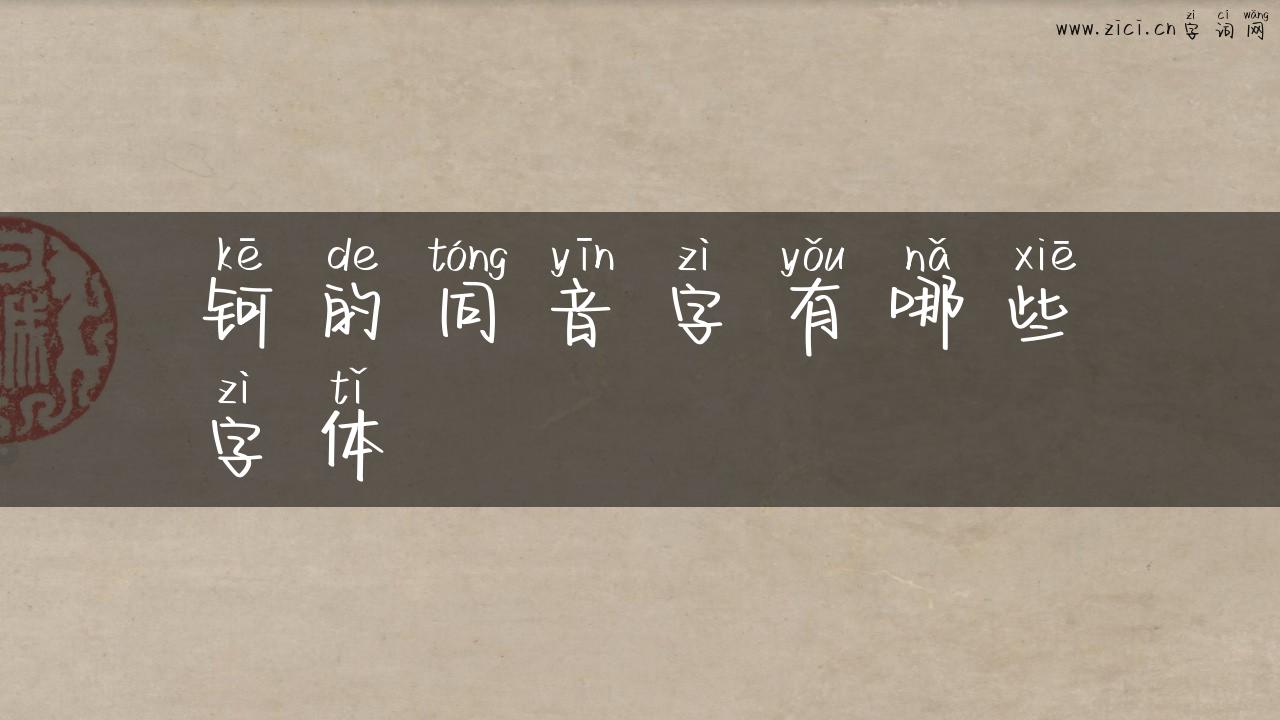 zì cí wǎng
www.zici.cn 字词网
kē de tóng yīn zì yǒu nǎ xiē
钶的同音字有哪些
zì tǐ
字体